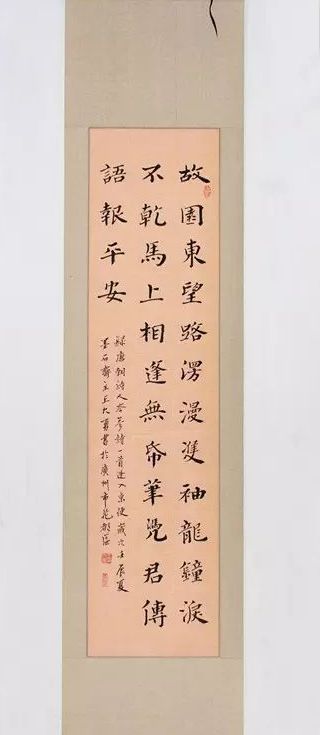 故園東望路漫漫雙袖龍鐘淚
不乾馬上相逢無帋筆凭君傳
語報平安
錄唐朝詩人岑參詩一首逢入京使歲次壬辰夏
墨石齋主大勇書於廣州市花都區